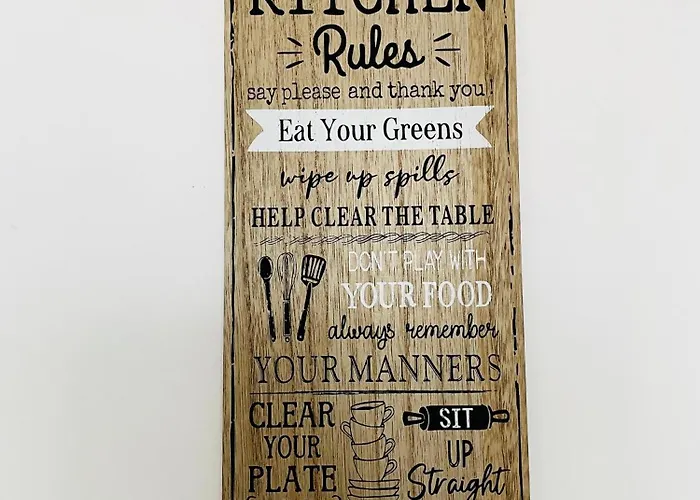 KITCHEN
Rules
say please and thank you!
Eat Your Greens
wipe up spills
HELP CLEAR THE TABLE
DON'T PLAY WITH
YOUR FOOD
always remember
YOUR MANNERS
CLEAR
YOUR
PLATE
SIT
UP
Straight